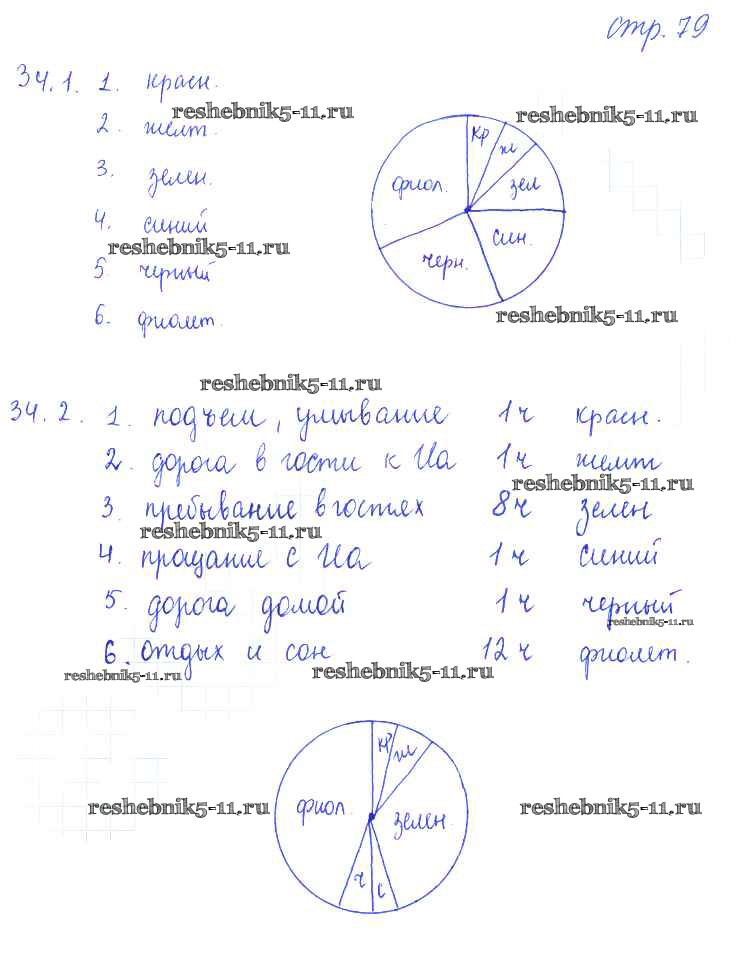 стр. 79
34.1. 1. красн.
reshebnik5-11.ru
reshebnik5-11.ru
2. желт.
3. зелен.
4. синий
reshebnik5-11.ru
5. черный
6. фиолет.
кр
ж
зел
син.
черн.
фиол.
reshebnik5-11.ru
reshebnik5-11.ru
34.2. 1. подъем, умывание 1ч красн.
2. дорога в гости к Иа 1ч желт
reshebnik5-11.ru
3. пребывание в гостях 8ч зелен
reshebnik5-11.ru
4. прощание с Иа 1ч синий
5. дорога домой 1ч черный
reshebnik5-11.ru
6. отдых и сон 12ч фиолет.
reshebnik5-11.ru
reshebnik5-11.ru
кр
ж
фиол.
зелен.
reshebnik5-11.ru
reshebnik5-11.ru
ч
с